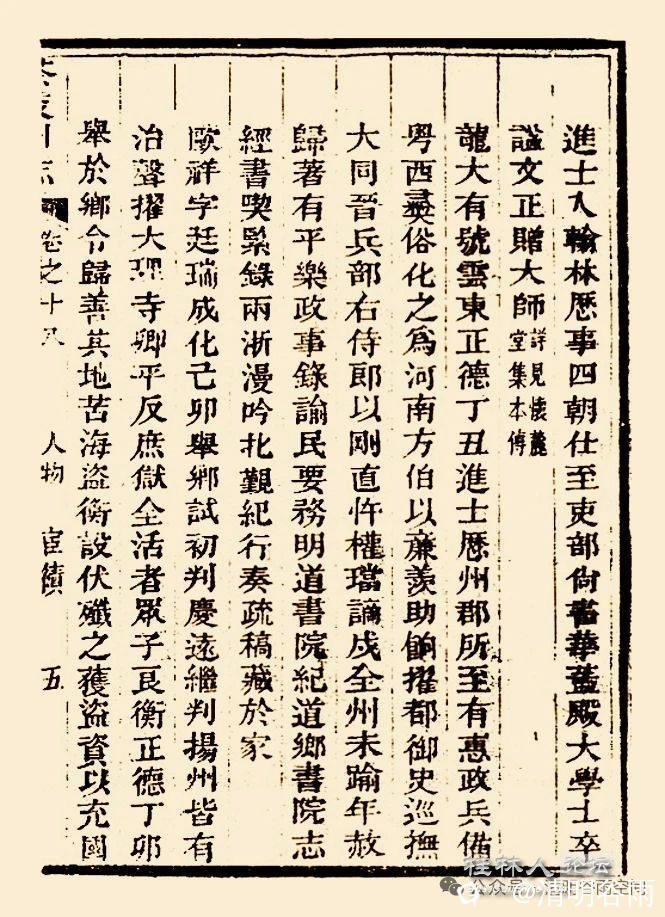 進士入翰林歷事四朝仕至吏部尚書華蓋殿大學士卒
諡文正贈大師詳見懷麓堂集本傳
龍大有號雲東正德丁丑進士歷州郡所至有惠政兵備
粤西彝俗化之爲河南方伯以廉羨助餉擢都御史巡撫
大同晉兵部右侍郎以剛直忤權璫謫戍全州未踰年赦
歸著有平樂政事錄諭民要務明道書院紀道鄉書院志
經書喫緊錄兩浙漫吟北覲紀行奏疏稿藏於家
歐祥字廷瑞成化己卯舉鄉試初判慶遠繼判揚州皆有
治聲擢大理寺卿平反庶獄全活者眾子良衡正德丁卯
舉於鄉令歸善其地苦海盜衡設伏殲之獲盜資以充國
茶陵州志 卷之十八 人物 宦績 五
桂林人论坛
公众号
@清明谷雨